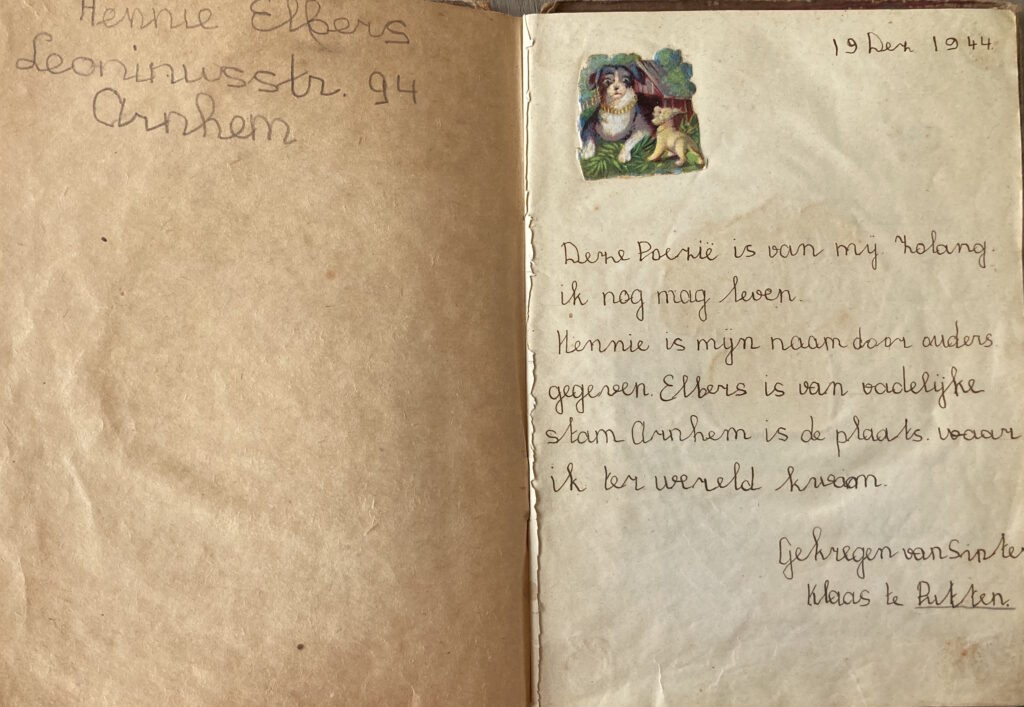 Hennie Elbers
Leoninusstr. 94
Arnhem
19 Dez 1944
Deze Poezië is van mij. Zolang.
ik nog mag leven.
Hennie is mijn naam door ouders
gegeven. Elbers is van vadelijke
stam Arnhem is de plaats. waar
ik ter wereld kwam.
Gekregen van Sinter
Klaas te Putten.